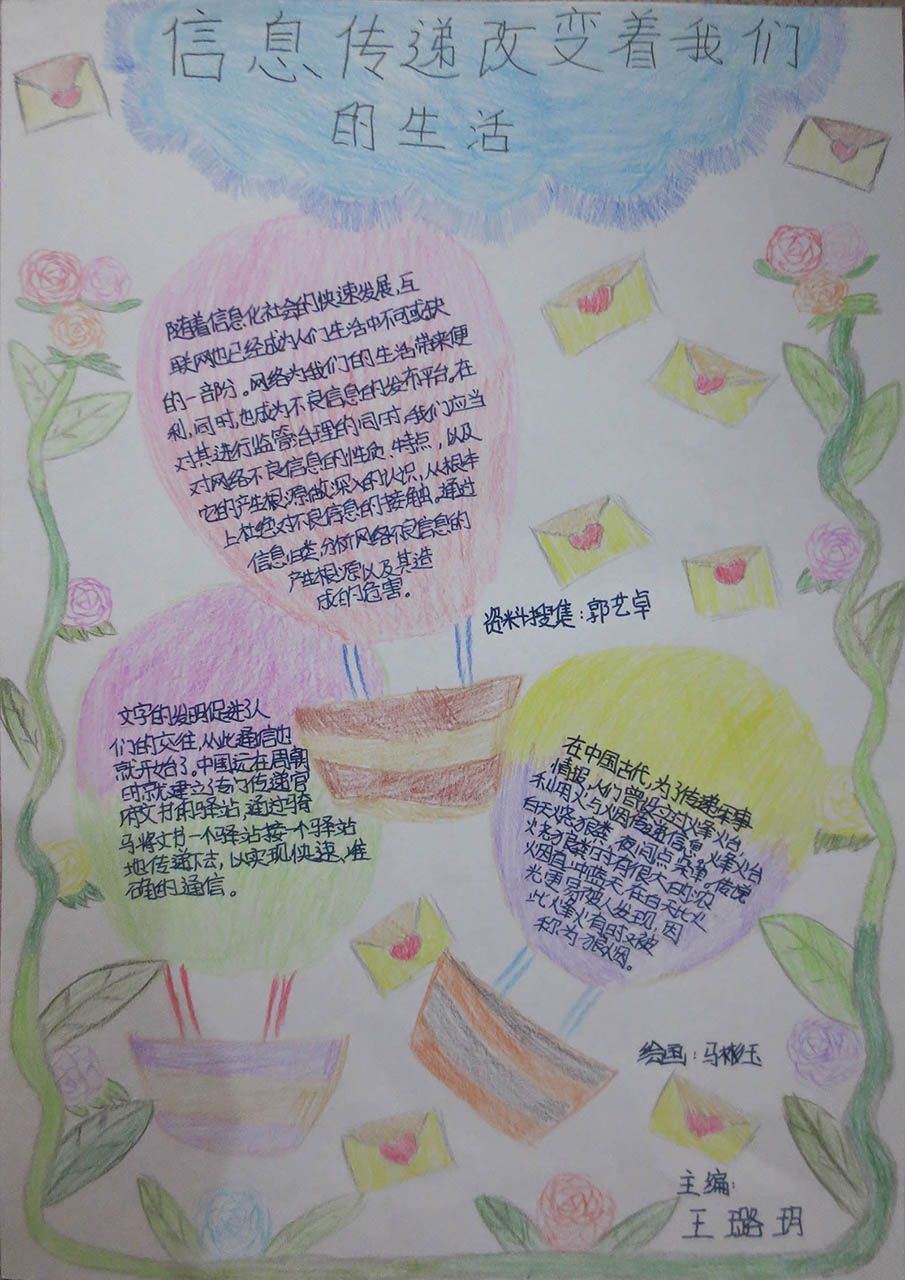 信息传递改变着我们
的生活
随着信息化社会的快速发展,互
联网也已经成为人们生活中不可或缺
的一部分。网络为我们的生活带来便
利,同时,也成为不良信息的发布平台。在
对其进行监管治理的同时,我们应当
对网络不良信息的性质、特点,以及
它的产生根源做深入的认识,从根本
上杜绝对不良信息的接触,通过
信息归类,分析网络不良信息的
产生根源以及其造
成的危害。
资料搜集:郭艺卓
文字的发明促进了人
们的交往,从此通信也
就开始了。中国远在周朝
时就建立了专门传递官
府文书的驿站,通过马骑
马将文书一个驿站接一个驿站
地传递下去,以实现快速、准
确的通信。
在中国古代,为了传递军事
情报,人们曾设立过烽火台,
利用火与烟传递信息。烽火台
白天烧狼粪,夜间点柴薪。传说
烧狼粪时有很大的浓
烟直冲蓝天,在白天比火
光更容易被人发现,因
此烽火有时又被
称为狼烟。
绘画:马彬玉
主编:
王璐玥